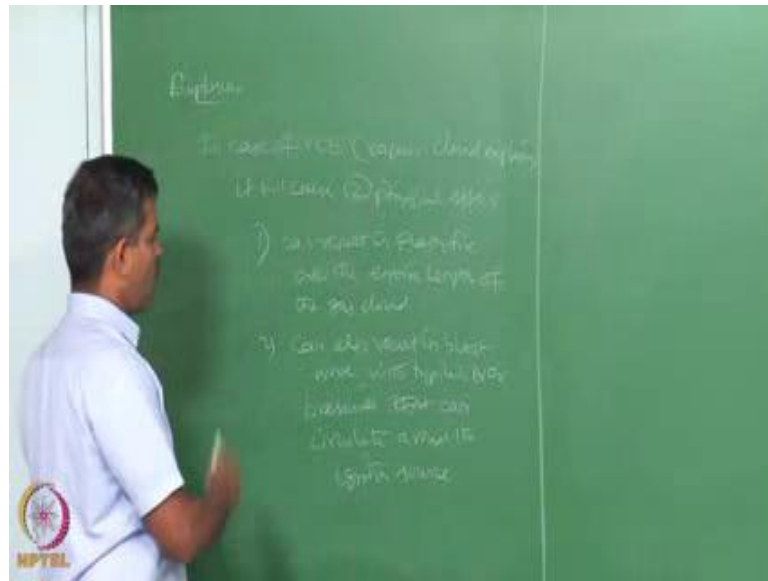 Explosion
In case of VCE (vapour cloud explosion
it will cause (2) physical effects
1) can result in flash fire
over the entire length of
the gas cloud
2) can also result in blast
wave with typical
pressure that can
circulate
ignition source
NPTEL